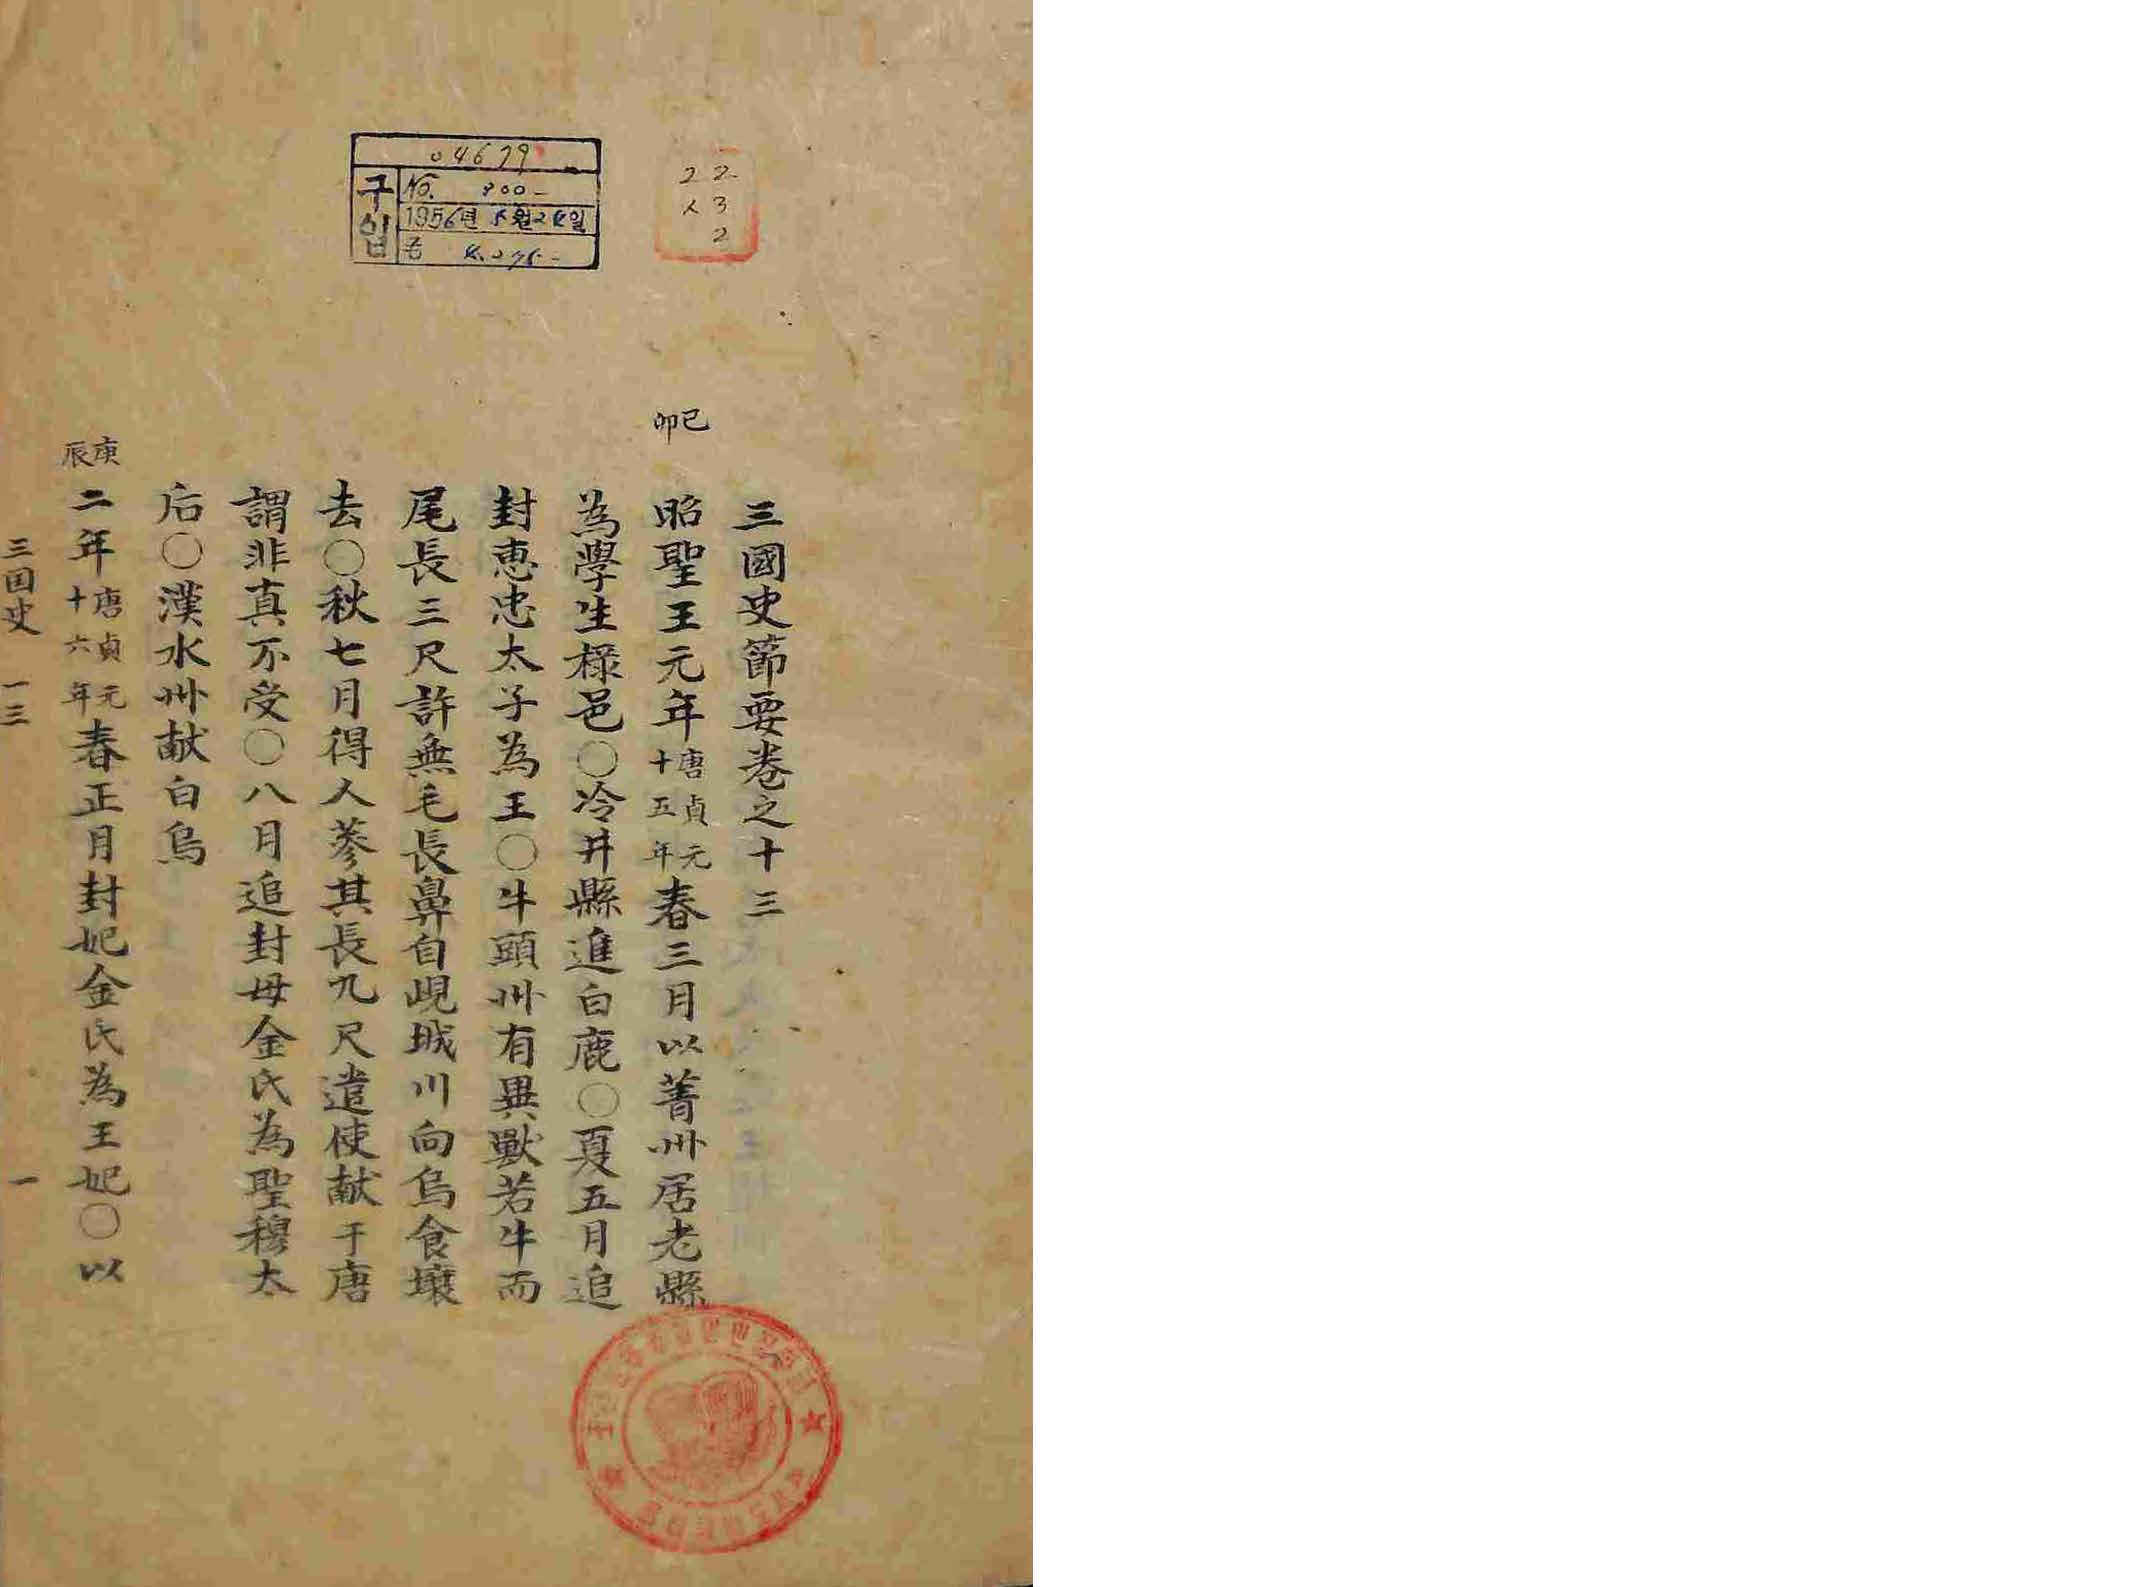 04679
구입
No. 800-
1956년 5월24일
22
ㅅ3
2
三國史節要卷之十三
己卯
昭聖王元年唐貞元十五年春三月以菁州居老縣
為學生祿邑○冷井縣進白鹿○夏五月追
封惠忠太子為王○牛頭州有異獸若牛而
尾長三尺許無毛長鼻自峴城川向烏食壤
去○秋七月得人蔘其長九尺遣使献于唐
謂非真不受○八月追封母金氏為聖穆太
后○漢水州献白烏
庚辰
二年唐貞元十六年春正月封妃金氏為王妃○以
三国史 一三 一